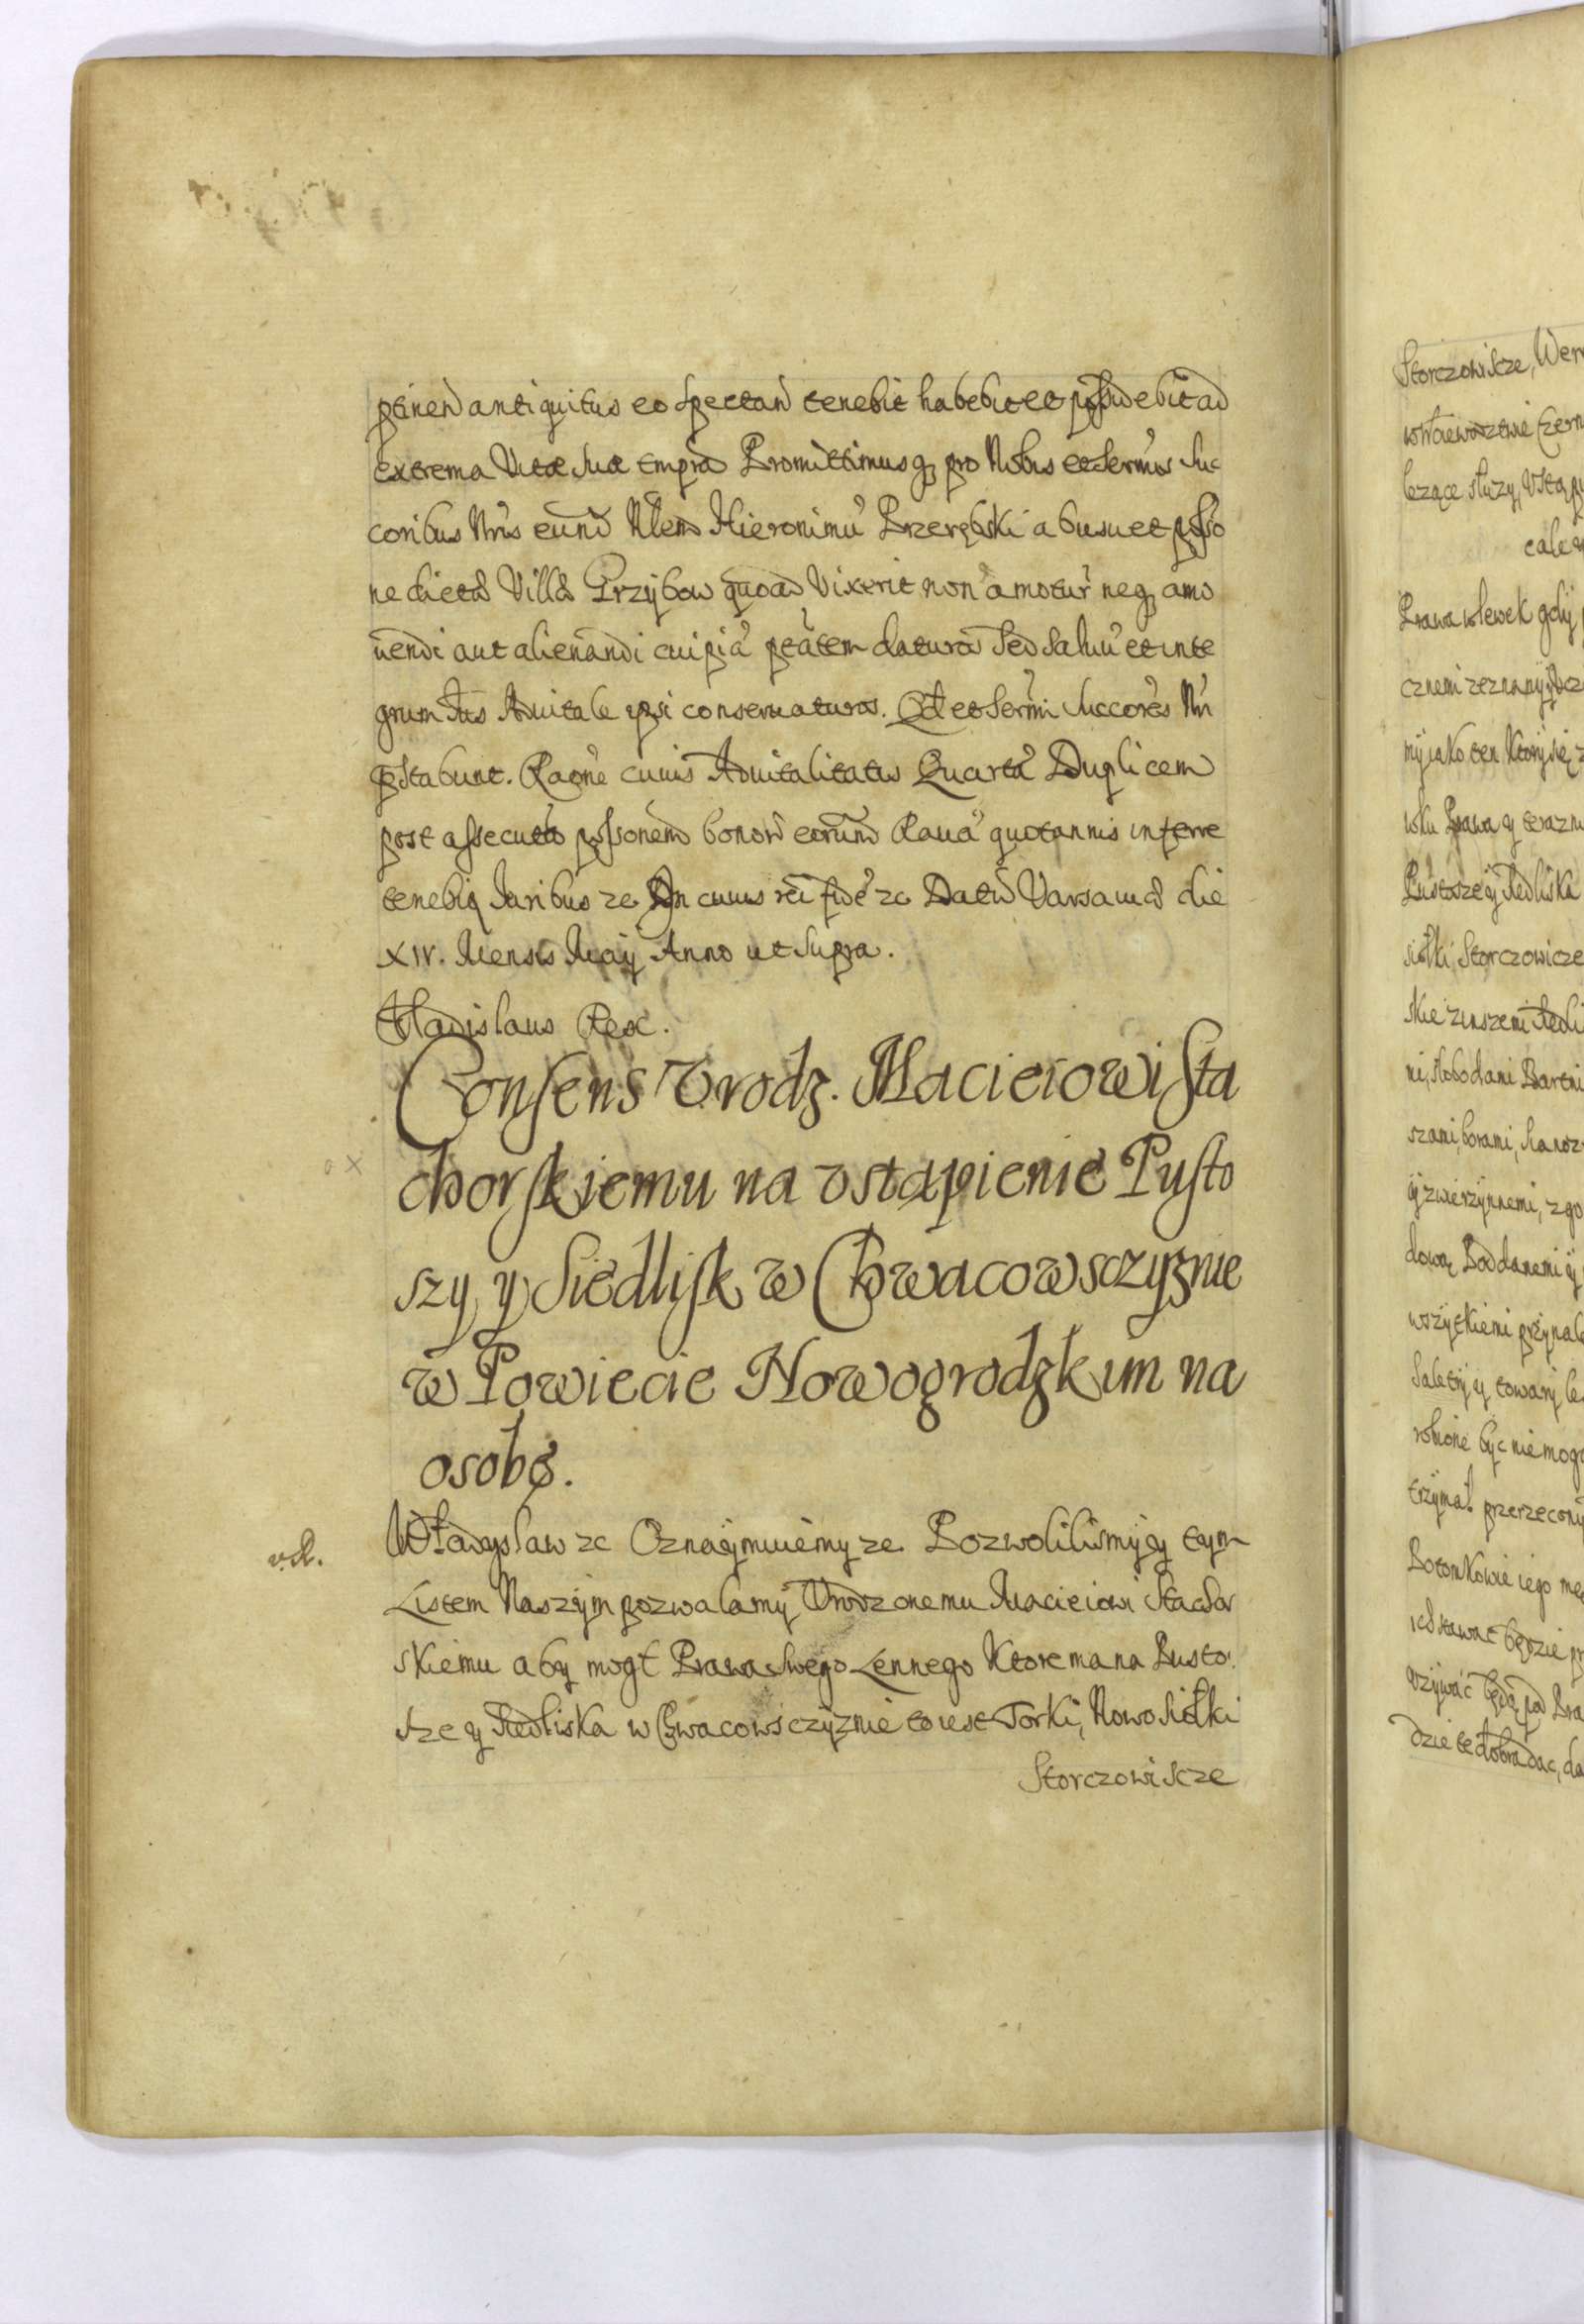 ptinen antiquitus eo spectan tenebit habebit et possidebit ad
extrema Vitæ suæ tempora Promittimusq pro Nobis et Sermis Suc
coribus Nris eund Nlem Hieronimu Przerębski ab usu et posso
ne dictæ Villæ Przybow quoad Vixerit non amotur neq amo
uendi aut alienandi cuipia ptatem daturos Sed Saluu et inte
grum Jus Aduitale ipsi conseruaturos. Qd et Sermi Succores Nri
pstabunt. Raone cuius Aduitalitatis Quarta Duplicem
post assecuta possonem bonor eorund Raua quotannis inferre
tenebiq Juribus zc In cuius rei fide zc Datu Varsauiæ die
XIV. Mensis Maij Anno ut Supra.
Vladislaus Rex.
Consens Vrodz. Macieiowi Sta
chorskiemu na vstąpienie Pusto
szy y Siedlisk w Chwacowsczyznie
w Powiecie Nowogrodzkim na
osobę.
Władysław zc Oznaymuiemy ze Pozwoliliśmy y tym
Listem Naszym pozwalamy Vrodzonemu Macieiowi Stachor
skiemu aby mogł Prawa swego Lennego Ktore ma na Pusto
sze y Siedliska w Chwacowsczyznie to iest Torki, Nowosiołki
Storczowiscze
Storczowiscze, Wer
w Woiewodztwie Czern
lezące służy, Vstąpi
Prawa wlewek gdy
my iako ten Ktory się z
wku Prawa y terazn
Pustosze y Siedliska
siołki Storczowicze
ni, słobodami Bartni
y zwierzynnemi, z go
dową Poddanemi y
wszytkiemi przynale
Saletry y towary le
robione być nie mogą
trzymał przerzeczony
Potomkowie iego mę
dzie te dobra dac, da